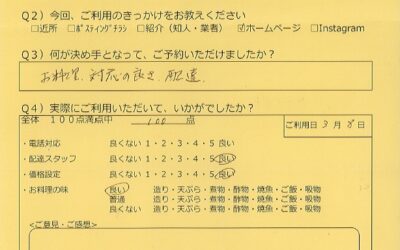 Q2）今回、ご利用のきっかけをお教えください
□近所　□ﾎﾟｽﾃｨﾝｸﾞﾁﾗｼ　□紹介（知人・業者）　☑ホームページ　□Instagram
Q3）何が決め手となって、ご予約いただけましたか？
お料理、対応の良さ、配達
Q4）実際にご利用いただいて、いかがでしたか？
全体　１００点満点中　100　点
ご利用日 3 月 8 日
・電話対応　良くない 1・2・3・4・5 良い
・配達スタッフ　良くない 1・2・3・4・5 良い
・価格設定　良くない 1・2・3・4・5 良い
・お料理の味　良い　造り・天ぷら・煮物・酢物・焼魚・ご飯・吸物
普通　造り・天ぷら・煮物・酢物・焼魚・ご飯・吸物
良くない　造り・天ぷら・煮物・酢物・焼魚・ご飯・吸物
＜ご意見・ご感想＞